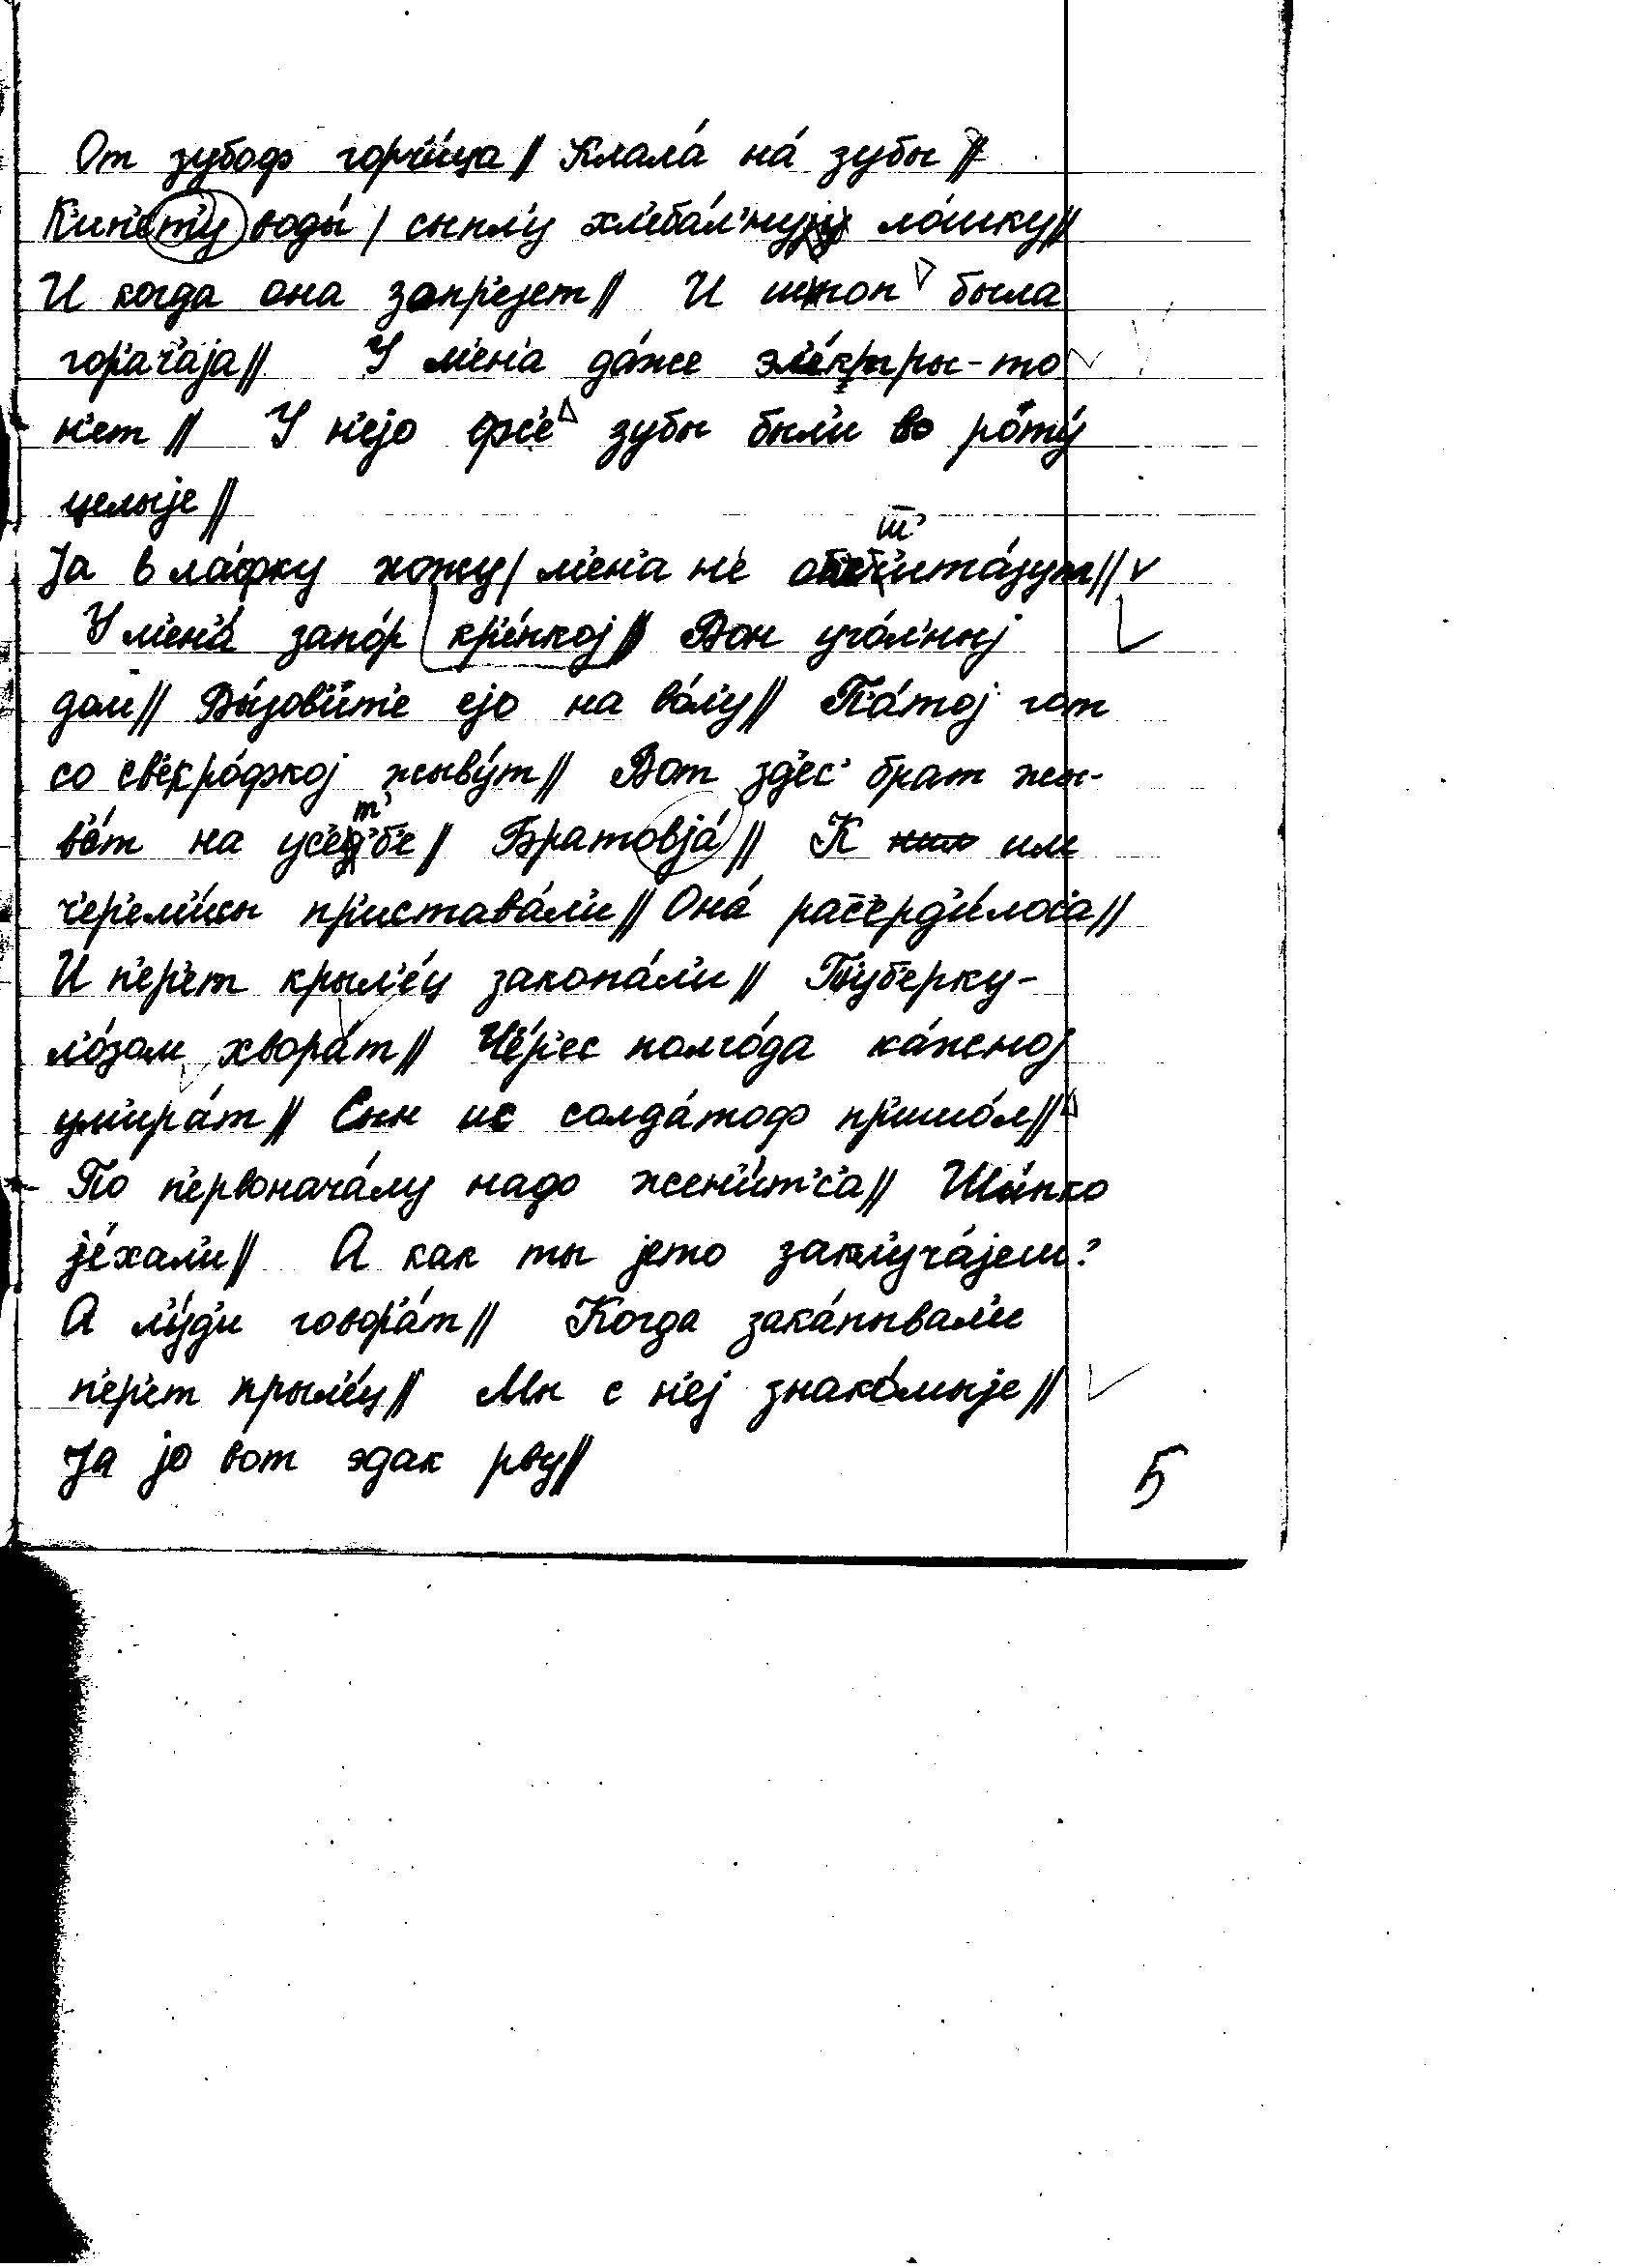 От зубоф горч'и́ца // Клала́ на́ зубы //
К'ип'ету воды́ / сыпл'у хл'еба́л'нуjу ло́шку //
И когда она запр'еjет // И штоп была
гор'ач'аjа // У м'ен'а да́же эл'е́кры-то
н'ет // У н'еjо фс'е зубы был'и во роту́
целыjе //
Jа в ла́фку хожу / м'ен'а н'е
У м'ен'а́ запо́р кр'е́пкоj // Вон уго́л'ныj
дом // Вы́зов'ит'е еjо на во́л'у // П'а́тоj гот
со св'екро́фкоj жыву́т // Вот зд'ес' брат жы-
в'о́т на ус'ет'б'е / Братовjа́ // К им
ч'ер'ем'и́сы пр'истава́л'и // Она́ рас'с'ерд'и́лос'а //
И п'ер'ет крыл'е́ц закопа́л'и // Туб'ерку-
л'о́зом хвора́т // Ч'е́р'ес полго́да ка́жноj
ум'ира́т // Сын ис солда́тоф пр'ишо́л //
По п'ервонача́лу надо жен'и́т'с'а // Шы́пко
jе́хал'и // А как ты jето закл'уч'а́jеш?
А л'у́д'и говор'а́т // Когда зака́пывал'и
п'ер'ет крыл'е́ц // Мы с н'еj знако́мыjе //
Jа jо вот эдак рву //
5